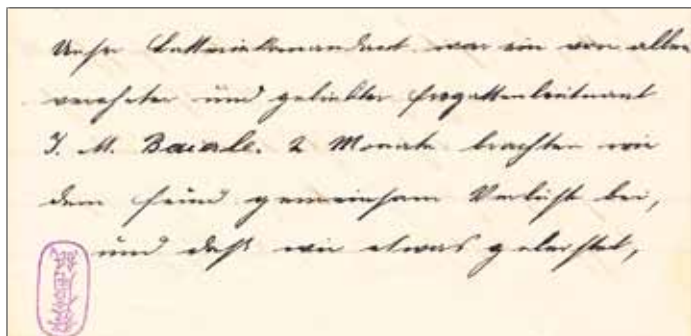 Unser Batteriekomandant war ein von allen
verehrter und geliebter Fregattenleutnant
J. M. Baierle. 2 Monate brachten wir
dem Feind gemeinsam Verluste bei,
und daß wir etwas geleistet,